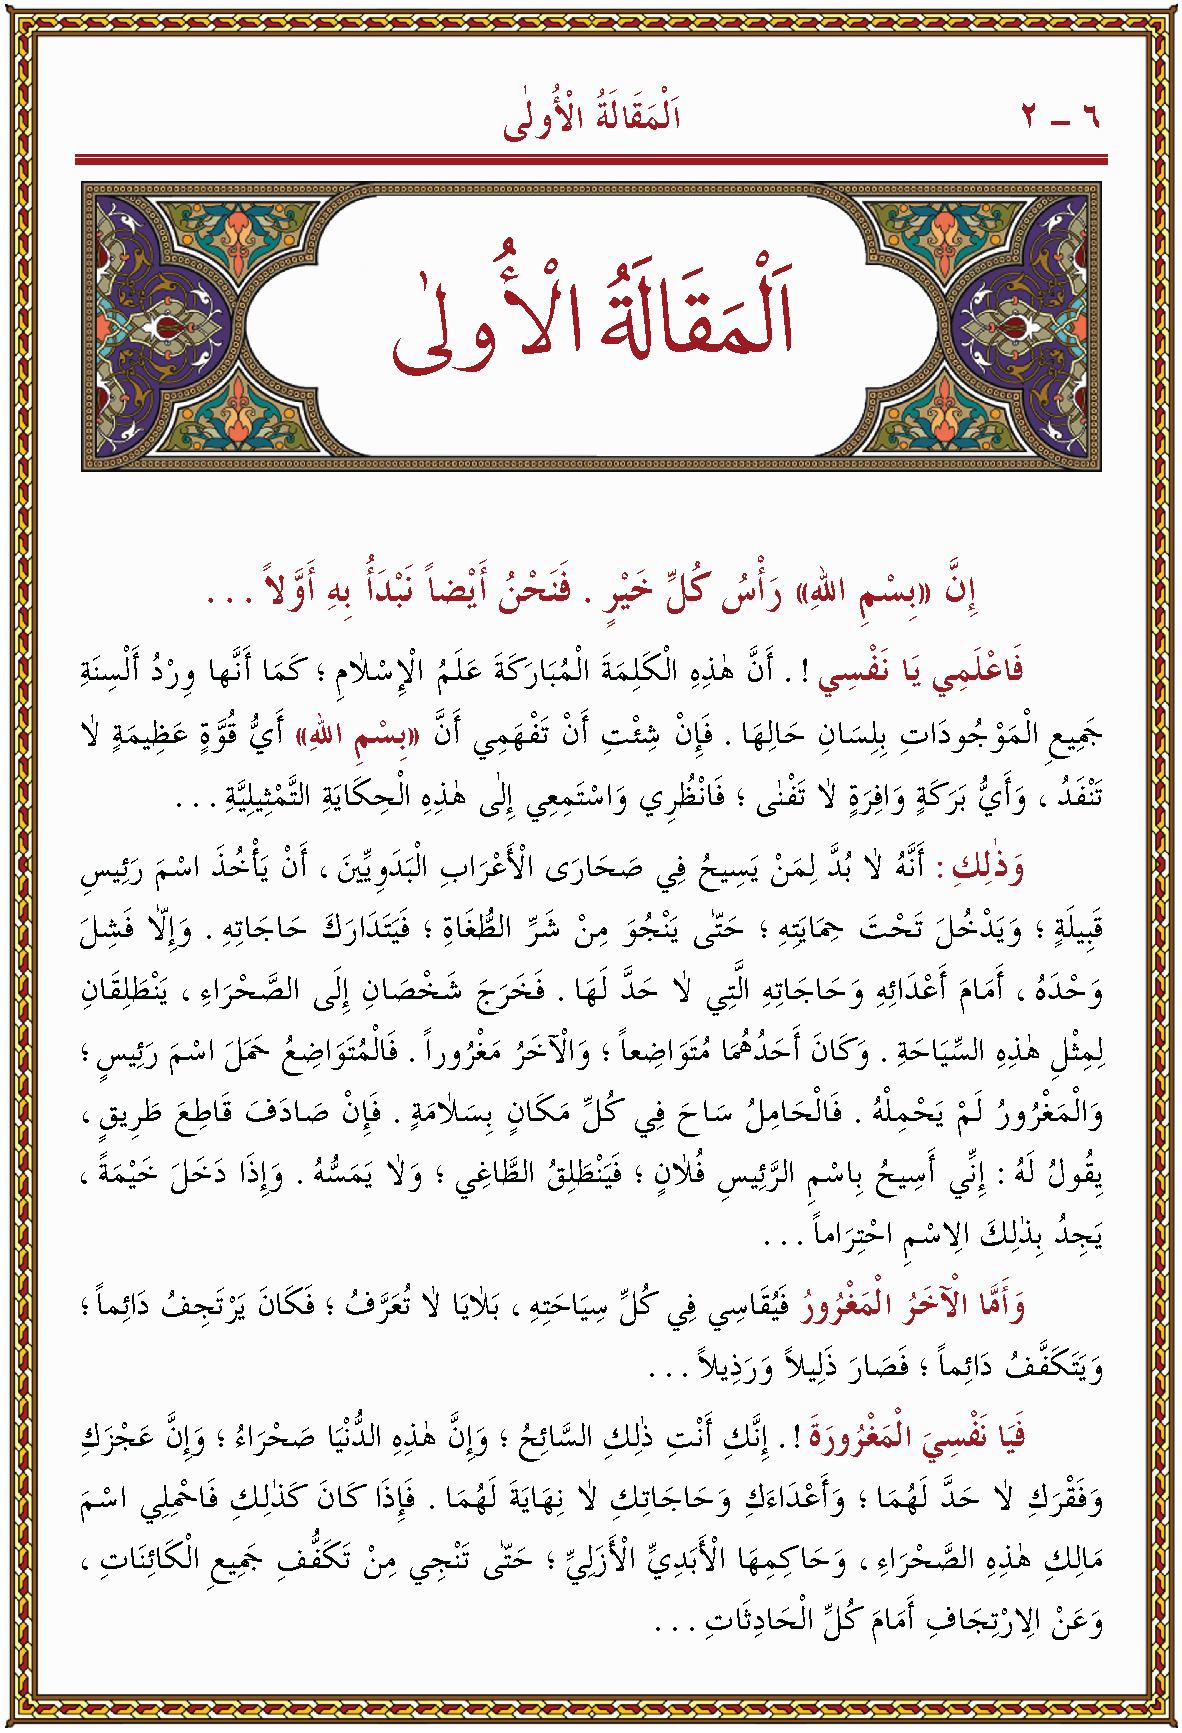 ٦ – ٢ اَلْمَقَالَةُ الْأُولٰى
اَلْمَقَالَةُ الْأُولٰى
إِنَّ «بِسْمِ اللهِ» رَأْسُ كُلِّ خَيْرٍ . فَنَحْنُ أَيْضاً نَبْدَأُ بِهِ أَوَّلاً . . .
فَاعْلَمِي يَا نَفْسِي ! . أَنَّ هٰذِهِ الْكَلِمَةَ الْمُبَارَكَةَ عَلَمُ الْإِسْلَامِ ؛ كَمَا أَنَّهَا وِرْدُ أَلْسِنَةِ
جَمِيعِ الْمَوْجُودَاتِ بِلِسَانِ حَالِهَا . فَإِنْ شِئْتِ أَنْ تَفْهَمِي أَنَّ «بِسْمِ اللهِ» أَيُّ قُوَّةٍ عَظِيمَةٍ لَا
تَنْفَدُ ، وَأَيُّ بَرَكَةٍ وَافِرَةٍ لَا تَفْنٰى ؛ فَانْظُرِي وَاسْتَمِعِي إِلٰى هٰذِهِ الْحِكَايَةِ التَّمْثِيلِيَّةِ . . .
وَذٰلِكِ : أَنَّهُ لَا بُدَّ لِمَنْ يَسِيحُ فِي صَحَارَى الْأَعْرَابِ الْبَدَوِيِّينَ ، أَنْ يَأْخُذَ اسْمَ رَئِيسِ
قَبِيلَةٍ ؛ وَيَدْخُلَ تَحْتَ حِمَايَتِهِ ؛ حَتّٰى يَنْجُوَ مِنْ شَرِّ الطُّغَاةِ ؛ فَيَتَدَارَكَ حَاجَاتِهِ . وَإِلَّا فَشِلَ
وَحْدَهُ ، أَمَامَ أَعْدَائِهِ وَحَاجَاتِهِ الَّتِي لَا حَدَّ لَهَا . فَخَرَجَ شَخْصَانِ إِلَى الصَّحْرَاءِ ، يَنْطَلِقَانِ
لِمِثْلِ هٰذِهِ السِّيَاحَةِ . وَكَانَ أَحَدُهُمَا مُتَوَاضِعاً ؛ وَالْآخَرُ مَغْرُوراً . فَالْمُتَوَاضِعُ حَمَلَ اسْمَ رَئِيسٍ ؛
وَالْمَغْرُورُ لَمْ يَحْمِلْهُ . فَالْحَامِلُ سَاحَ فِي كُلِّ مَكَانٍ بِسَلَامَةٍ . فَإِنْ صَادَفَ قَاطِعَ طَرِيقٍ ،
يَقُولُ لَهُ : إِنِّي أَسِيحُ بِاسْمِ الرَّئِيسِ فُلَانٍ ؛ فَيَنْطَلِقُ الطَّاغِي ؛ وَلَا يَمَسُّهُ . وَإِذَا دَخَلَ خَيْمَةً ،
يَجِدُ بِذٰلِكَ الِاسْمِ احْتِرَاماً . . .
وَأَمَّا الْآخَرُ الْمَغْرُورُ فَيُقَاسِي فِي كُلِّ سِيَاحَتِهِ ، بَلَايَا لَا تُعَرَّفُ ؛ فَكَانَ يَرْتَجِفُ دَائِماً ؛
وَيَتَكَفَّفُ دَائِماً ؛ فَصَارَ ذَلِيلاً وَرَذِيلاً . . .
فَيَا نَفْسِيَ الْمَغْرُورَةَ ! . إِنَّكِ أَنْتِ ذٰلِكِ السَّائِحُ ؛ وَإِنَّ هٰذِهِ الدُّنْيَا صَحْرَاءُ ؛ وَإِنَّ عَجْزَكِ
وَفَقْرَكِ لَا حَدَّ لَهُمَا ؛ وَأَعْدَاءَكِ وَحَاجَاتِكِ لَا نِهَايَةَ لَهُمَا . فَإِذَا كَانَ كَذٰلِكِ فَاحْمِلِي اسْمَ
مَالِكِ هٰذِهِ الصَّحْرَاءِ ، وَحَاكِمِهَا الْأَبَدِيِّ الْأَزَلِيِّ ؛ حَتّٰى تَنْجِي مِنْ تَكَفُّفِ جَمِيعِ الْكَائِنَاتِ ،
وَعَنْ الِارْتِجَافِ أَمَامَ كُلِّ الْحَادِثَاتِ . . .